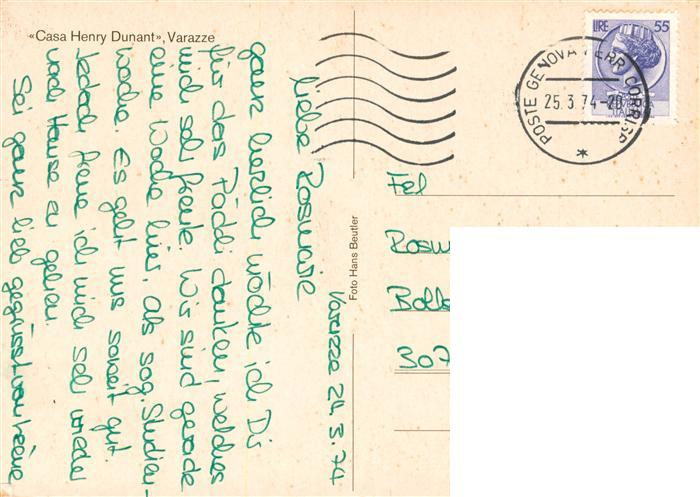 «Casa Henry Dunant», Varazze
Varazze 24.3.74
Liebe Rosmarie
ganz herzlich möchte ich Dir
für das Päckli danken, welches
mich sehr freute. Wir sind gerade
eine Woche hier. Als sog. Studien-
woche. Es geht uns soweit gut.
Jedoch freue ich mich sehr wieder
nach Hause zu gehen.
Sei ganz lieb gegrüsst von
Foto Hans Beutler
LIRE 55
POSTE GENOVA FERR CORRISP
25.3.74-20
Frl
Rosm
Boll
307